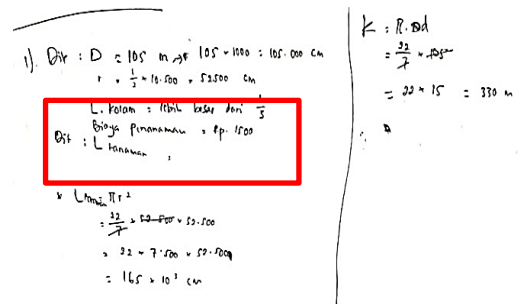 1). Dit : D = 105 m → 105 × 1000 = 105.000 cm
r = 1/2 × 10.500 = 52500 cm
L. kolam = lebih besar dari 1/5
Biaya penanaman = Rp. 1500
Dit : L tanaman =
* L πr²
= 22/7 × 52.500 × 52.500
= 22 × 7.500 × 52.500
= 165 × 10³ cm
K = π.d
= 22/7 × 105
= 22 × 15 = 330 m
∴